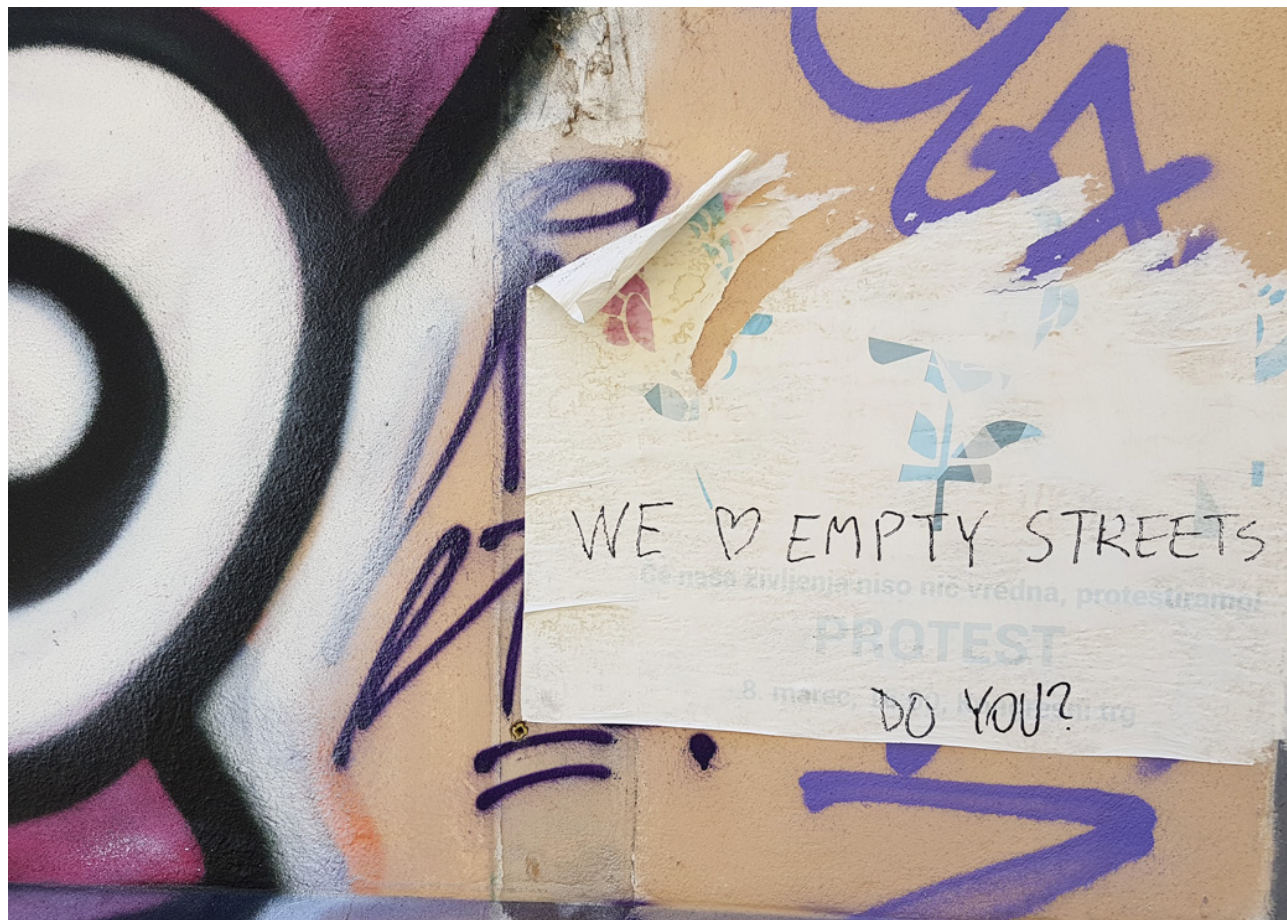 WE ♡ EMPTY STREETS
Če naša življenja niso nič vredna, protestiramo!
PROTEST
8. marec, trg
DO YOU?